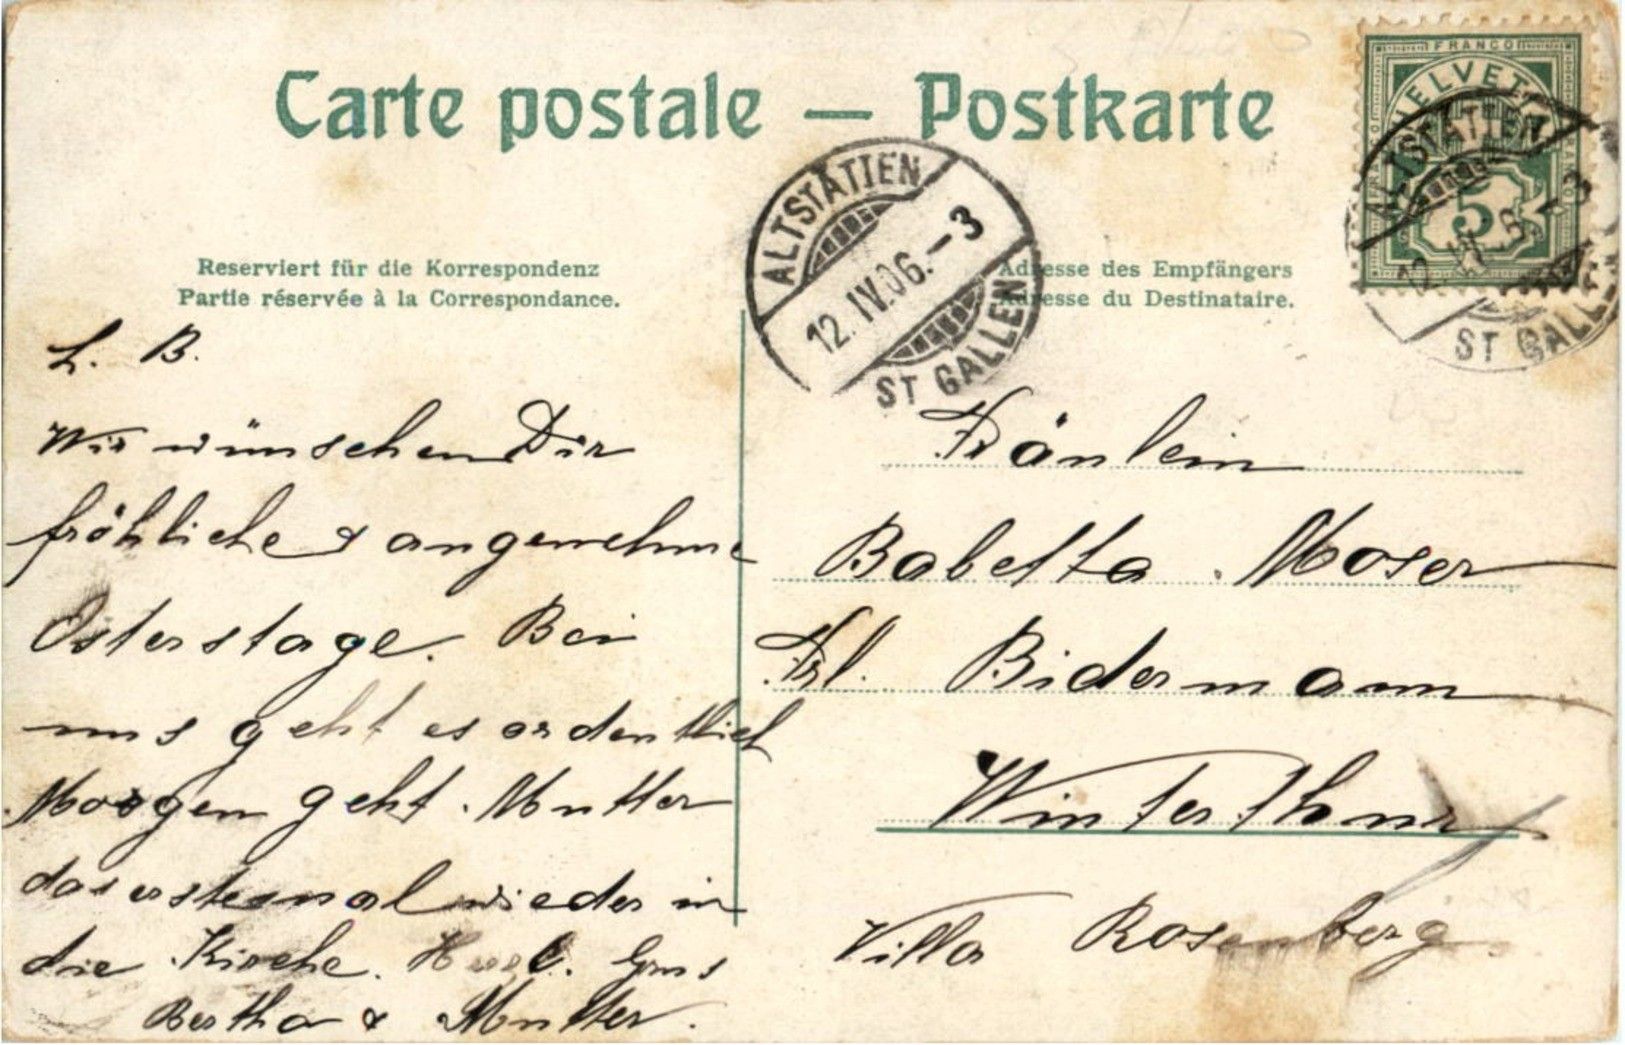 Carte postale — Postkarte
FRANCO
HELVETIA
5
ALTSTÄTTEN
12. IV. 06. – 3
ST GALLEN
ALTSTÄTTEN
12. IV. 06. – 3
ST GALLEN
Reserviert für die Korrespondenz
Partie réservée à la Correspondance.
Adresse des Empfängers
Adresse du Destinataire.
L. B.
Wir wünschen Dir
fröhliche & angenehme
Osterstage. Bei
uns geht es ordentlich
Morgen geht Mutter
das erstemal wieder in
die Kirche. Herzl. Grus
Bertha & Mutter.
Fräulein
Babetta Moser
Frl. Bidermann
Winterthur
Villa Rosenberg